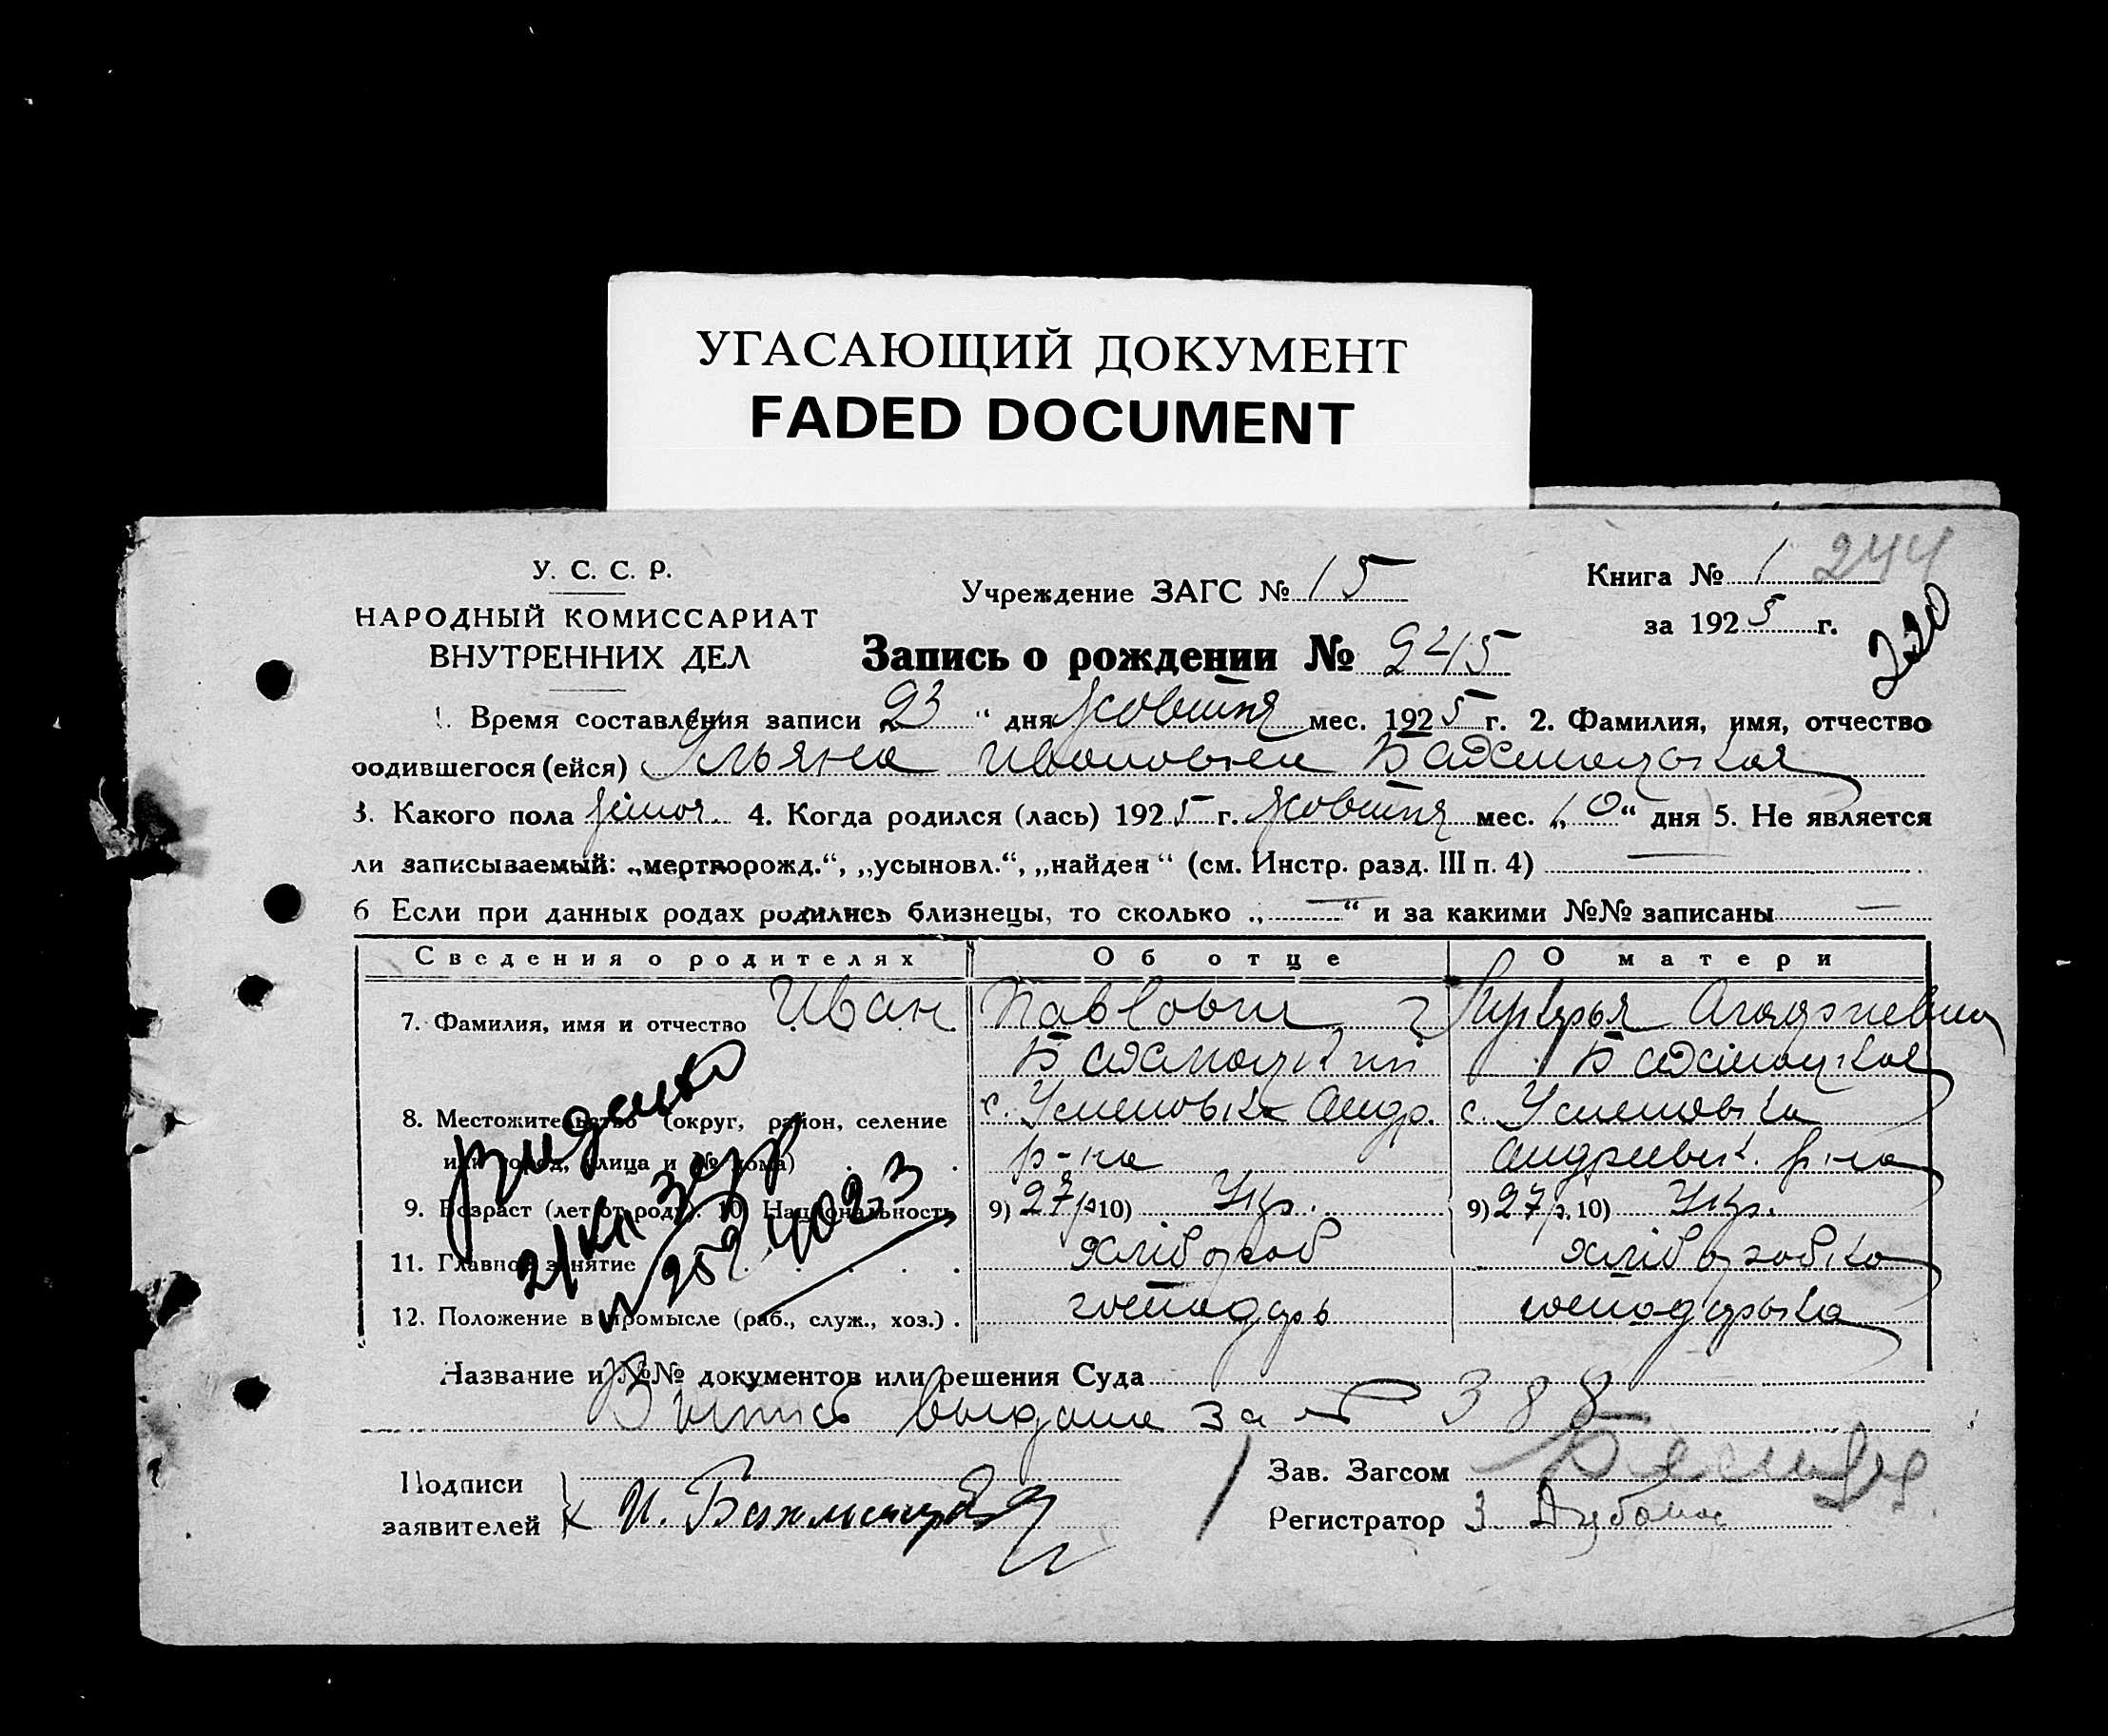 УГАСАЮЩИЙ ДОКУМЕНТ
FADED DOCUMENT
244
У. С. С. Р.
НАРОДНЫЙ КОМИССАРИАТ
ВНУТРЕННИХ ДЕЛ
Учреждение ЗАГС № 15
Книга № 1
за 1925 г.
Запись о рождении № 245
1. Время составления записи 23 " дня жовтня мес. 1925 г. 2. Фамилия, имя, отчество
родившегося (ейся) Ульяна Ивановна Бахмацькая
3. Какого пола жіноч. 4. Когда родился (лась) 1925 г. жовтня мес. „10“ дня 5. Не является
ли записываемый: „мертворожд.“, „усыновл.“, „найден“ (см. Инстр. разд. III п. 4) —
6 Если при данных родах родились близнецы, то сколько „—“ и за какими №№ записаны —
Сведения о родителях Об отце О матери
7. Фамилия, имя и отчество Иван Павлович
Бахмацкий Бахмацкая
8. Местожительство (округ, район, селение с. Успеновка Андр. с. Успеновка
или город, улица и № дома) р-на Андреевск. р-на
9. Возраст (лет от роду). 10. Национальность 9) 27 р 10) Укр. 9) 27 р. 10) Укр.
11. Главное занятие хлібороб хліборобка
12. Положение в промысле (раб., служ., хоз.) . господарь господарька
Название и №№ документов или решения Суда
Выпись выдана за № 388
Подписи
заявителей И. Бахмацкий
Зав. Загсом
Регистратор З.